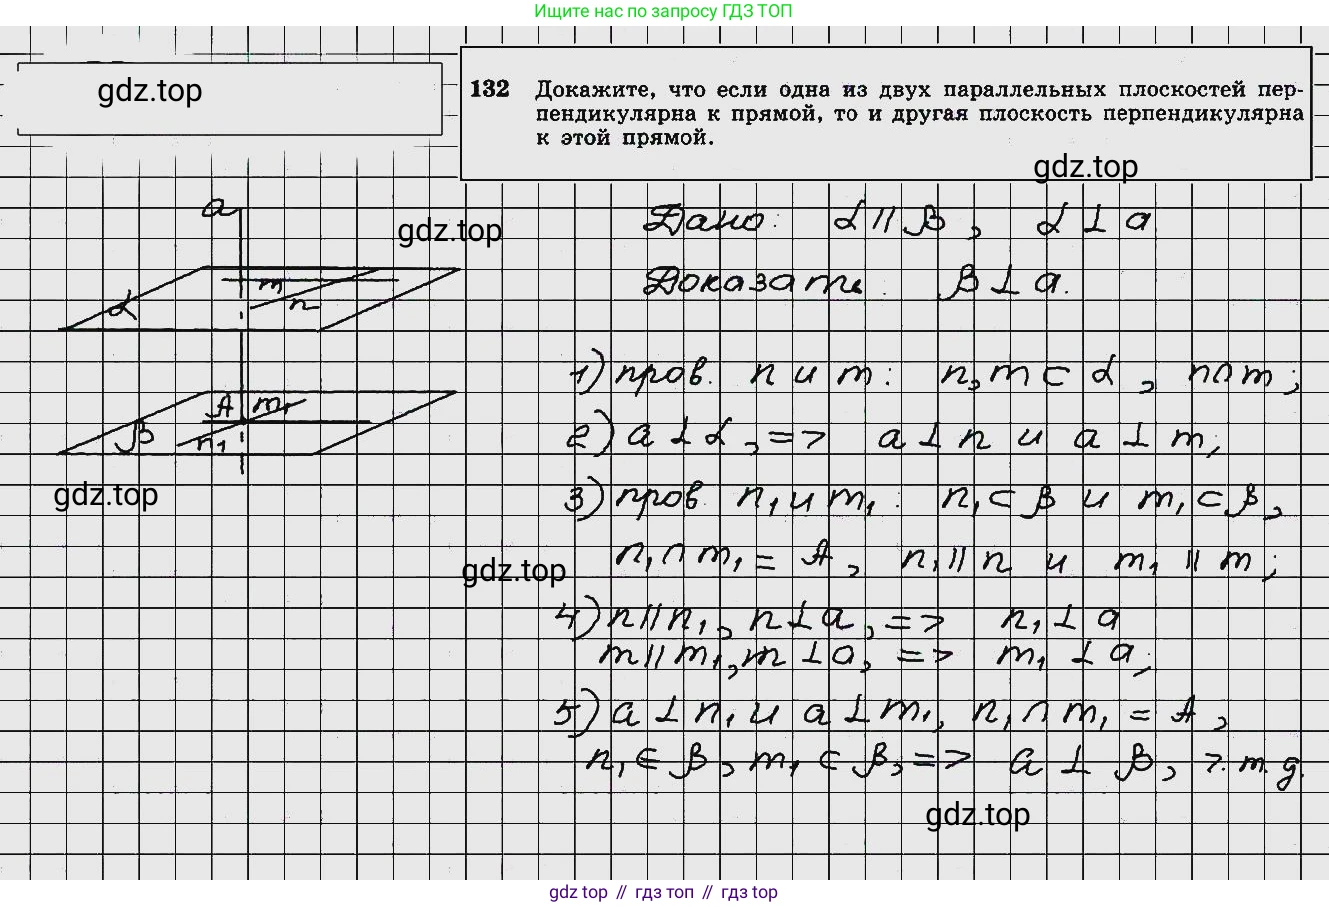 Ищите нас по запросу ГДЗ ТОП
gdz.top
132 Докажите, что если одна из двух параллельных плоскостей пер-
пендикулярна к прямой, то и другая плоскость перпендикулярна
к этой прямой.
gdz.top
a
gdz.top
m
n
α
A m₁
β n₁
gdz.top
Дано: α || β, α ⊥ a
Доказать: β ⊥ a.
1) пров. n и m: n, m ⊂ α, n ∩ m;
2) a ⊥ α, => a ⊥ n и a ⊥ m;
3) пров. n₁ и m₁: n₁ ⊂ β и m₁ ⊂ β,
n₁ ∩ m₁ = A, n₁ || n и m₁ || m;
gdz.top
4) n || n₁, n ⊥ a, => n₁ ⊥ a
m || m₁, m ⊥ a, => m₁ ⊥ a;
5) a ⊥ n₁ и a ⊥ m₁, n₁ ∩ m₁ = A,
n₁ ∈ β, m₁ ⊂ β, => a ⊥ β, ч.т.д.
gdz.top
gdz top // гдз топ // gdz top